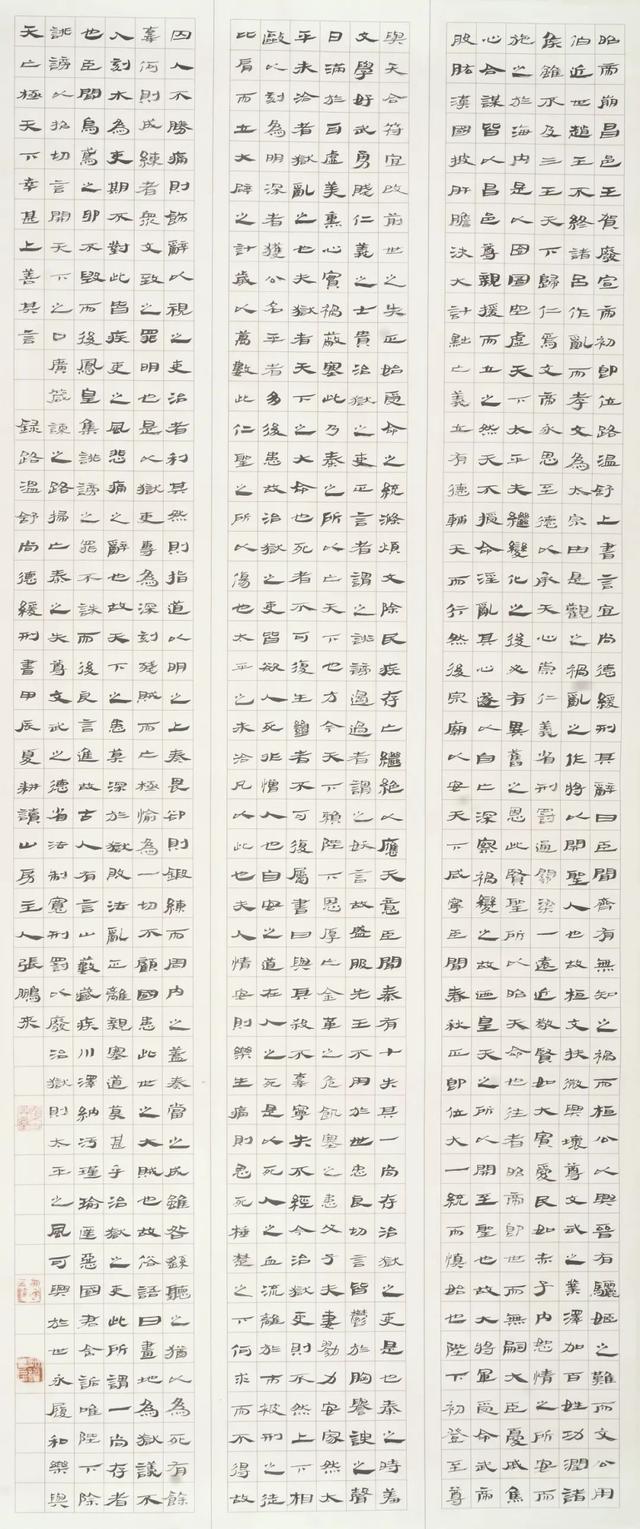 昭帝崩昌邑王賀廢宣帝初即位路溫舒上書言宜尚德緩刑其辭曰臣聞齊有無知之禍而桓公以興晉有驪姬之難而文公用
伯近世趙王不終諸呂作亂而孝文為太宗由是觀之禍亂之作將以開聖人也故桓文扶微興壞尊文武之業澤加百姓功潤諸
侯雖不及三王天下歸仁焉文帝永思至德以承天心崇仁義省刑罰通關梁一遠近敬賢如大賓愛民如赤子內恕情之所安而
施之於海內是以囹圄空虛天下太平夫繼變化之後必有異舊之恩此賢聖所以昭天命也往者昭帝即世而無嗣大臣憂戚焦
心合謀皆以昌邑尊親援而立之然天不授命淫亂其心遂以自亡深察禍變之故迺皇天之所以開至聖也故大將軍受命武帝
股肱漢國披肝膽決大計黜亡義立有德輔天而行然後宗廟以安天下咸寧臣聞春秋正即位大一統而慎始也陛下初登至尊
與天合符宜改前世之失正始受命之統滌煩文除民疾存亡繼絕以應天意臣聞秦有十失其一尚存治獄之吏是也秦之時羞
文學好武勇賤仁義之士貴治獄之吏正言者謂之誹謗遏過者謂之妖言故盛服先王不用於世忠良切言皆鬱於胸譽諛之聲
日滿於耳虛美熏心實禍蔽塞此乃秦之所以亡天下也方今天下賴陛下恩厚亡金革之危飢寒之患父子夫妻勠力安家然太
平未洽者獄亂之也夫獄者天下之大命也死者不可復生絕者不可復屬書曰與其殺不辜寧失不經今治獄吏則不然上下相
敺以刻為明深者獲公名平者多後患故治獄之吏皆欲人死非憎人也自安之道在人之死是以死人之血流離於市被刑之徒
比肩而立大辟之計歲以萬數此仁聖之所以傷也太平之未洽凡以此也夫人情安則樂生痛則思死棰楚之下何求而不得故
囚人不勝痛則飾辭以視之吏治者利其然則指道以明之上奏畏卻則鍛練而周內之蓋奏當之成雖咎繇聽之猶以為死有餘
辜何則成練者衆文致之罪明也是以獄吏專為深刻殘賊而亡極愉為一切不顧國患此世之大賊也故俗語曰畫地為獄議不
入刻木為吏期不對此皆疾吏之風悲痛之辭也故天下之患莫深於獄敗法亂正離親塞道莫甚乎治獄之吏此所謂一尚存者
也臣聞烏鳶之卵不毀而後鳳皇集誹謗之罪不誅而後良言進故古人有言山藪藏疾川澤納污瑾瑜匿惡國君含詬唯陛下除
誹謗以招切言開天下之口廣箴諫之路掃亡秦之失尊文武之德省法制寬刑罰以廢治獄則太平之風可興於世永履和樂與
天亡極天下幸甚上善其言 錄路溫舒尚德緩刑書甲辰夏耕讀山房主人張鵬來